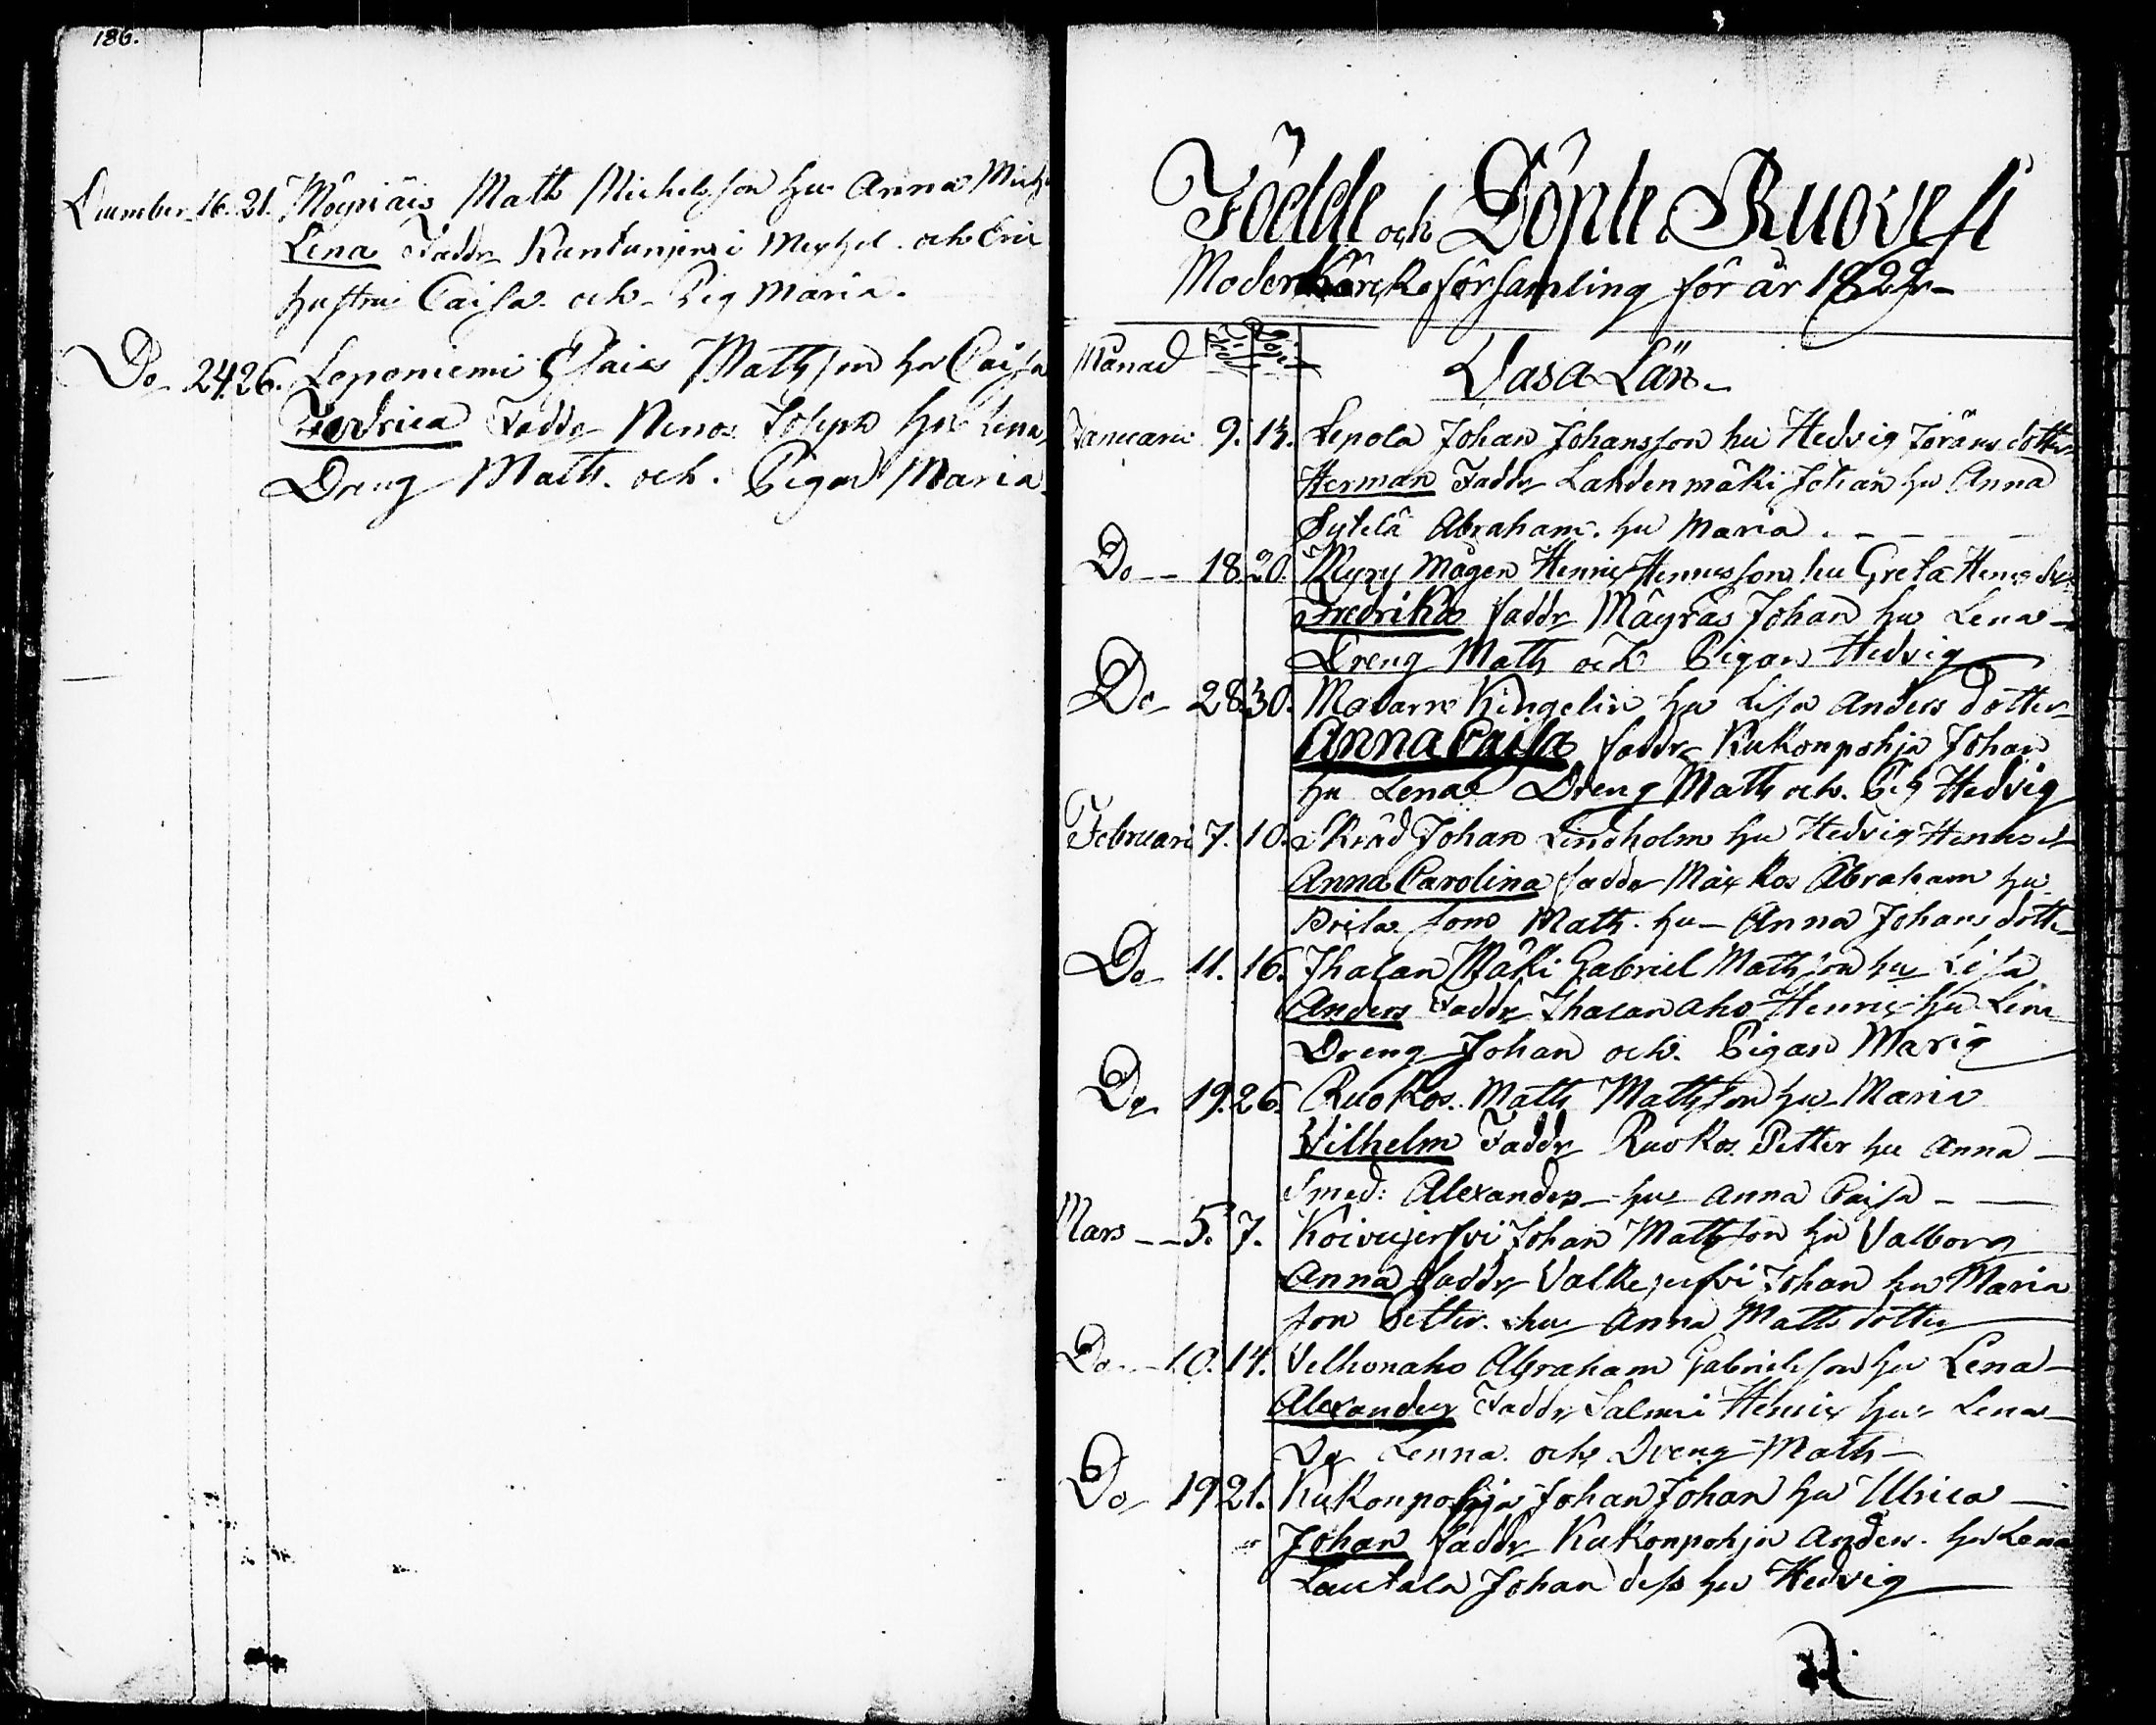 186.
December 16. 21. Möyriäis Matts Michelsson hu Anna Mich
Lena Faddr Kantunieni Michel och Eric
hustru Caisa och Pig Maria.
Do 24. 26. Leponiemi Esaias Mattsson hu Caisa
Fredrica Faddr Nenos Joseph hu Lena
Dreng Matts och Pigan Maria
Födde och Döpte i Ruovesi
Moderkörckoförsamling för år 1822
Månad Född Döpt Vasa Län
Januarii 9. 13. Lepola Johan Johansson hu Hedvig Jöransdotter
Herman Faddr Lahdenmäki Johan hu Anna
Sytelä Abraham hu Maria
Do 18. 20. Myry mågen Henric Henricsson hu Greta Henrics
Fredrika faddr Mäyräs Johan hu Lena
Dreng Matts och Pigan Hedvig
Do 28. 30. Mavarn Kingelin hu Lisa Anders dotter
Anna Caisa faddr Kukonpohja Johan
hu Lena Dreng Matts och Pig Hedvig
Februari 7. 10. Skräd Johan Lindholm hu Hedvig Henricsd
Anna Carolina faddr Märkos Abraham hu
Brita son Matts hu Anna Johans dotter
Do 11. 16. Jhalan Mäki Gabriel Mattsson hu Lisa
Anders Faddr Jhalan aho Henric hu Lena
Dreng Johan och Pigan Maria
Do 19. 26. Ruokos Matts Mattsson hu Maria
Vilhelm Faddr Ruokos Petter hu Anna
Smed: Alexander hu Anna Caisa
Mars 5. 7. Koivujerfvi Johan Mattsson hu Valborg
Anna faddr Valkejerfvi Johan hu Maria
son Petter hu Anna Matts dotter
Do 10. 14. Velhonaho Abraham Gabrielsson hu Lena
Alexander Faddr Salmi Henric hu Lena
Do Lenna och Dreng Matts
Do 19 21. Kukonpohja Johan Johan hu Ulrica
Johan faddr Kukonpohja Anders hu Lena
Lautala Johan dess hu Hedvig